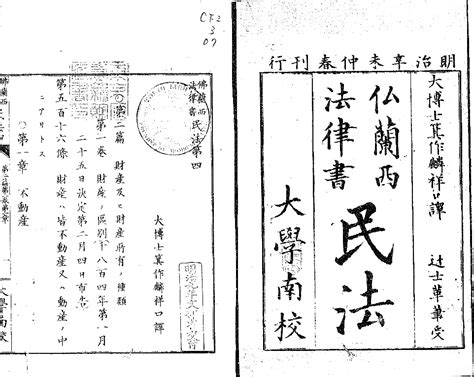 明治辛未仲春刊行
大博士箕作麟祥口譯
辻士革筆受
仏蘭西
法律書
民法
大學南校
佛蘭西
法律書
民法第四
大博士箕作麟祥口譯
〇第二篇 財産及ヒ財産所有ノ種類
第一巻 財産ノ區別 千八百四年第一月
二十五日決定第二月四日布告
第五百十六條 財産ハ皆不動産又ハ動産ノ中
ニアリトス
〇第一章 不動産
CF2
3
07